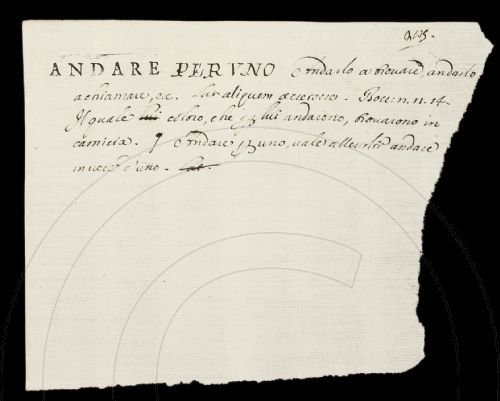 ANDARE PER VNO Andarlo a trovare, andarlo
a chiamare, &c. Lat. aliquem accersere. Bocc: n. n. 14
Il quale lui coloro, che p lui andarono, trovarono in
camicia. ¶ Andare p uno, vale alle volte andare
in vece d'uno. Lat.